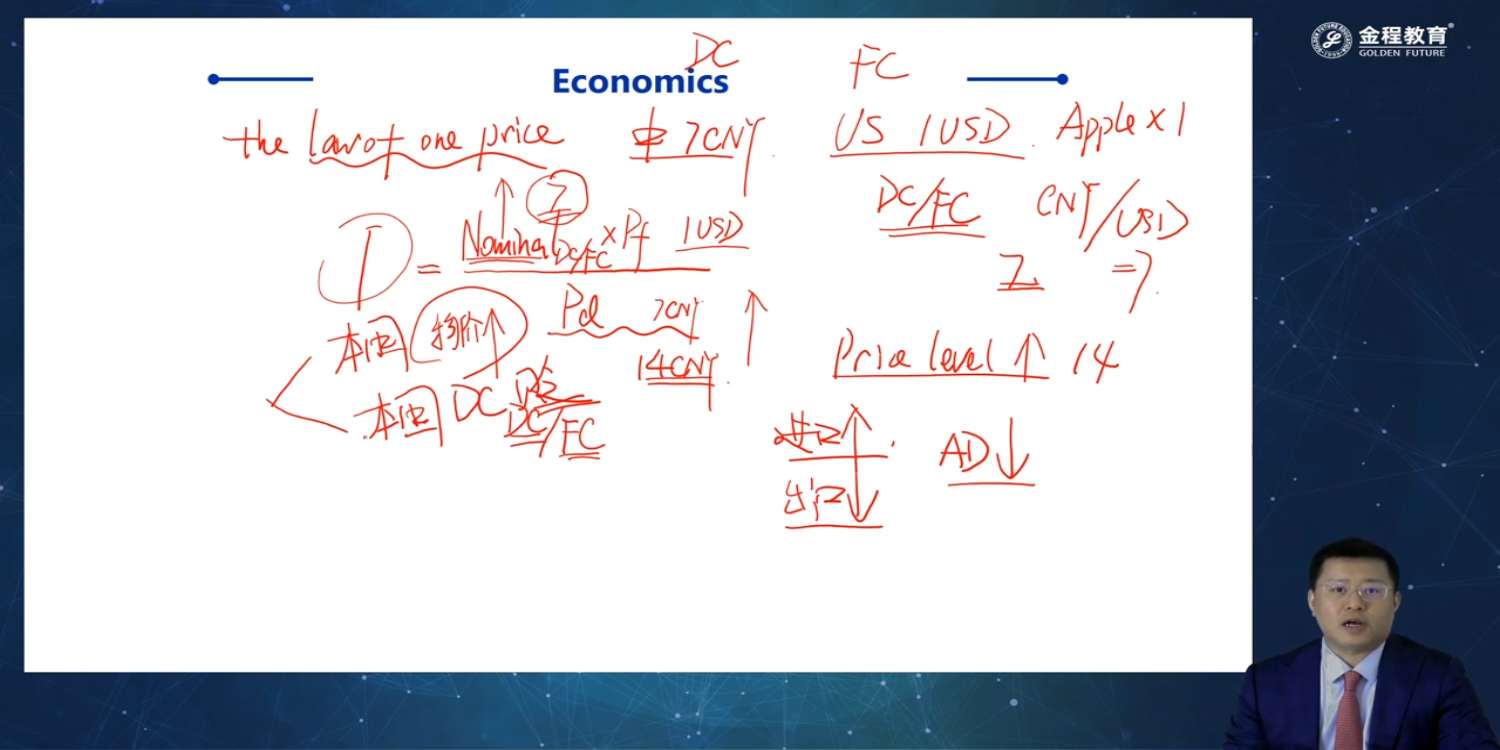 金程教育
GOLDEN FUTURE
DC FC
Economics
the law of one price 中 7CNY US 1USD Apple×1
DC/FC CNY/USD
7 =7
7
Nominal DC/FC × Pf 1USD
1 =
Pd 7CNY
14CNY
本国 物价↑
本国 DC
DC/FC
Price level ↑ 14
进口↑
出口↓
AD↓